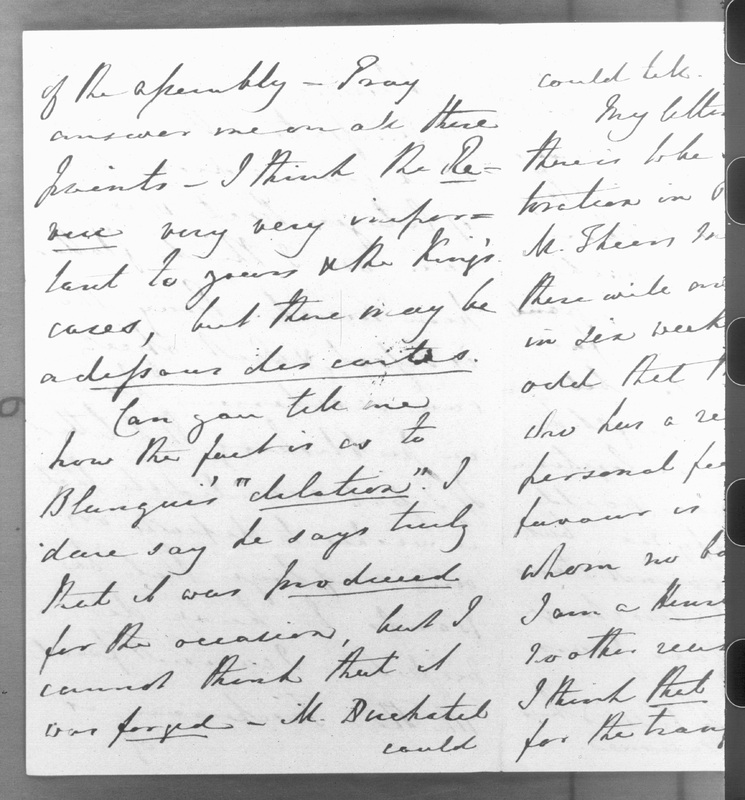 of the assembly – Pray
answer me on all these
points – I think the Re=
vue very very impor=
tant to yours & the King's
cases, but there may be
a dessous des cartes.
Can you tell me
how the fact is as to
Blanqui's "delation". I
dare say he says truly
that it was produced
for the occasion, but I
cannot think that it
was forged – M. Duchatel
could
could tell.
My lette
there is to be
toration in
M. Thiers
these will
in six week
odd that
who has a re
personal fee
favour is
whom no bo
I am a Henri
no other reas
I think that
for the tranq